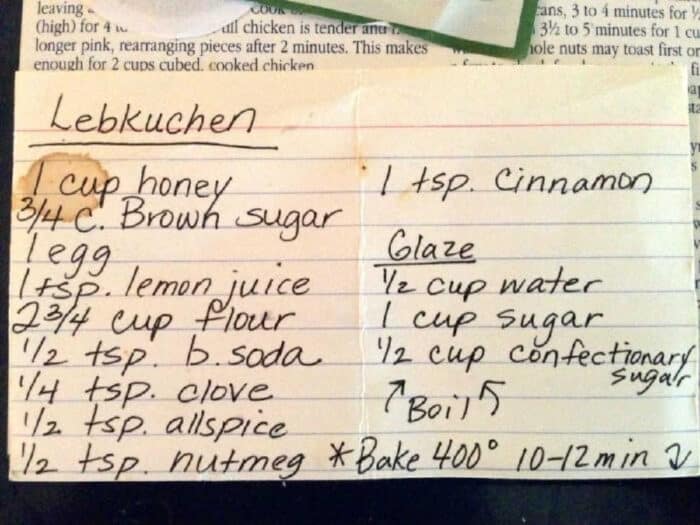 leaving
(high) for 4
chicken is tender and
longer pink, rearranging pieces after 2 minutes. This makes
enough for 2 cups cubed, cooked chicken
3 to 4 minutes for
3½ to 5 minutes for 1
nuts may toast first
Lebkuchen
1 cup honey
3/4 c. Brown sugar
1 egg
1 tsp. lemon juice
2 3/4 cup flour
1/2 tsp. b. soda
1/4 tsp. clove
1/2 tsp. allspice
1/2 tsp. nutmeg
1 tsp. Cinnamon
Glaze
1/2 cup water
1 cup sugar
1/2 cup confectionary
sugar
↗ Boil ↖
*Bake 400° 10-12 min ↷